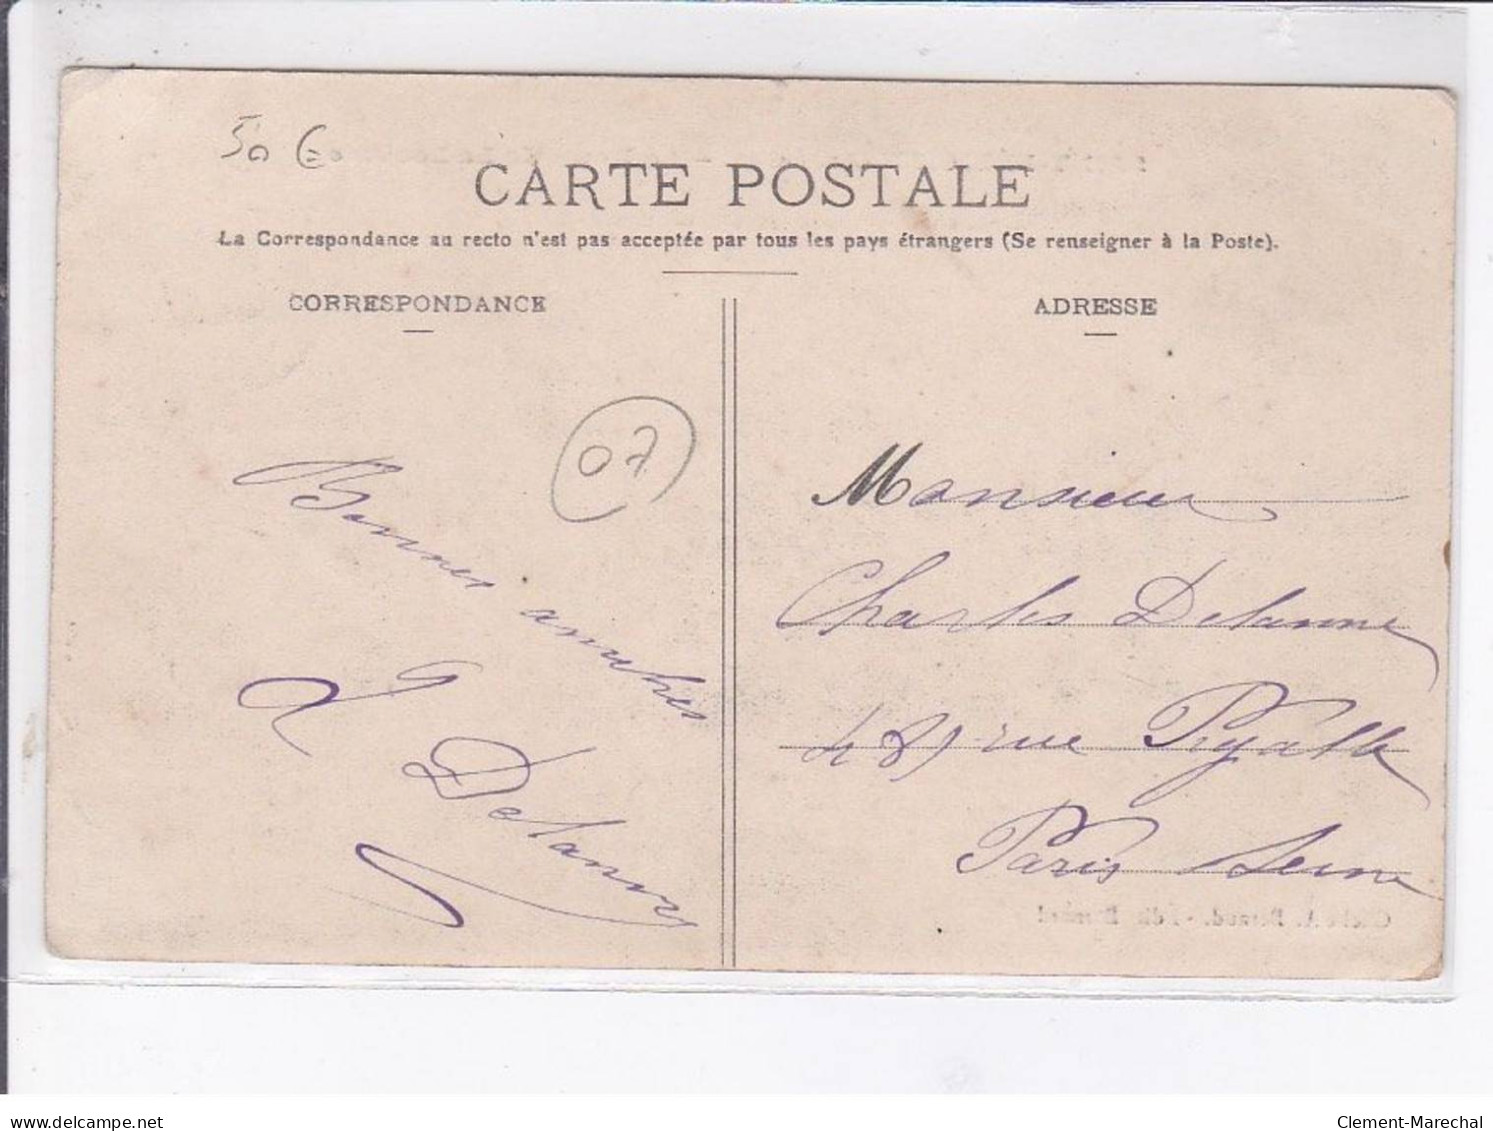 50 €
CARTE POSTALE
La Correspondance au recto n'est pas acceptée par tous les pays étrangers (Se renseigner à la Poste).
CORRESPONDANCE
07
Bonnes amitiés
Delanne
ADRESSE
Monsieur
Charles Delanne
rue Pigalle
Paris Seine
delcampe.net
Clement-Marechal